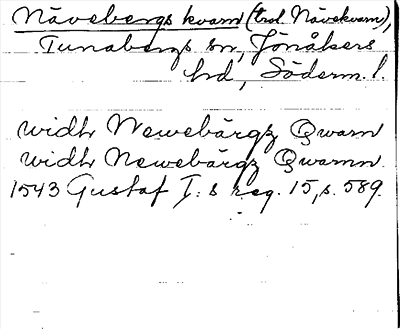 Nävebergs kvarn (trol Nävekvarn),
Tunabergs sn, Jönåkers
hd, Söderm. l.
widh Wewebärgz Qwarn
widh Newebärgz Qwarnn
1543 Gustaf I:s reg. 15, s. 589.